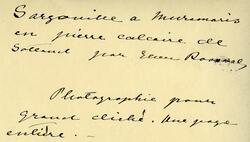 Gargouille a Muramaris
en pierre calcaire de
par Ellen
Photographie pour
grand cliché. Une page
entière. —